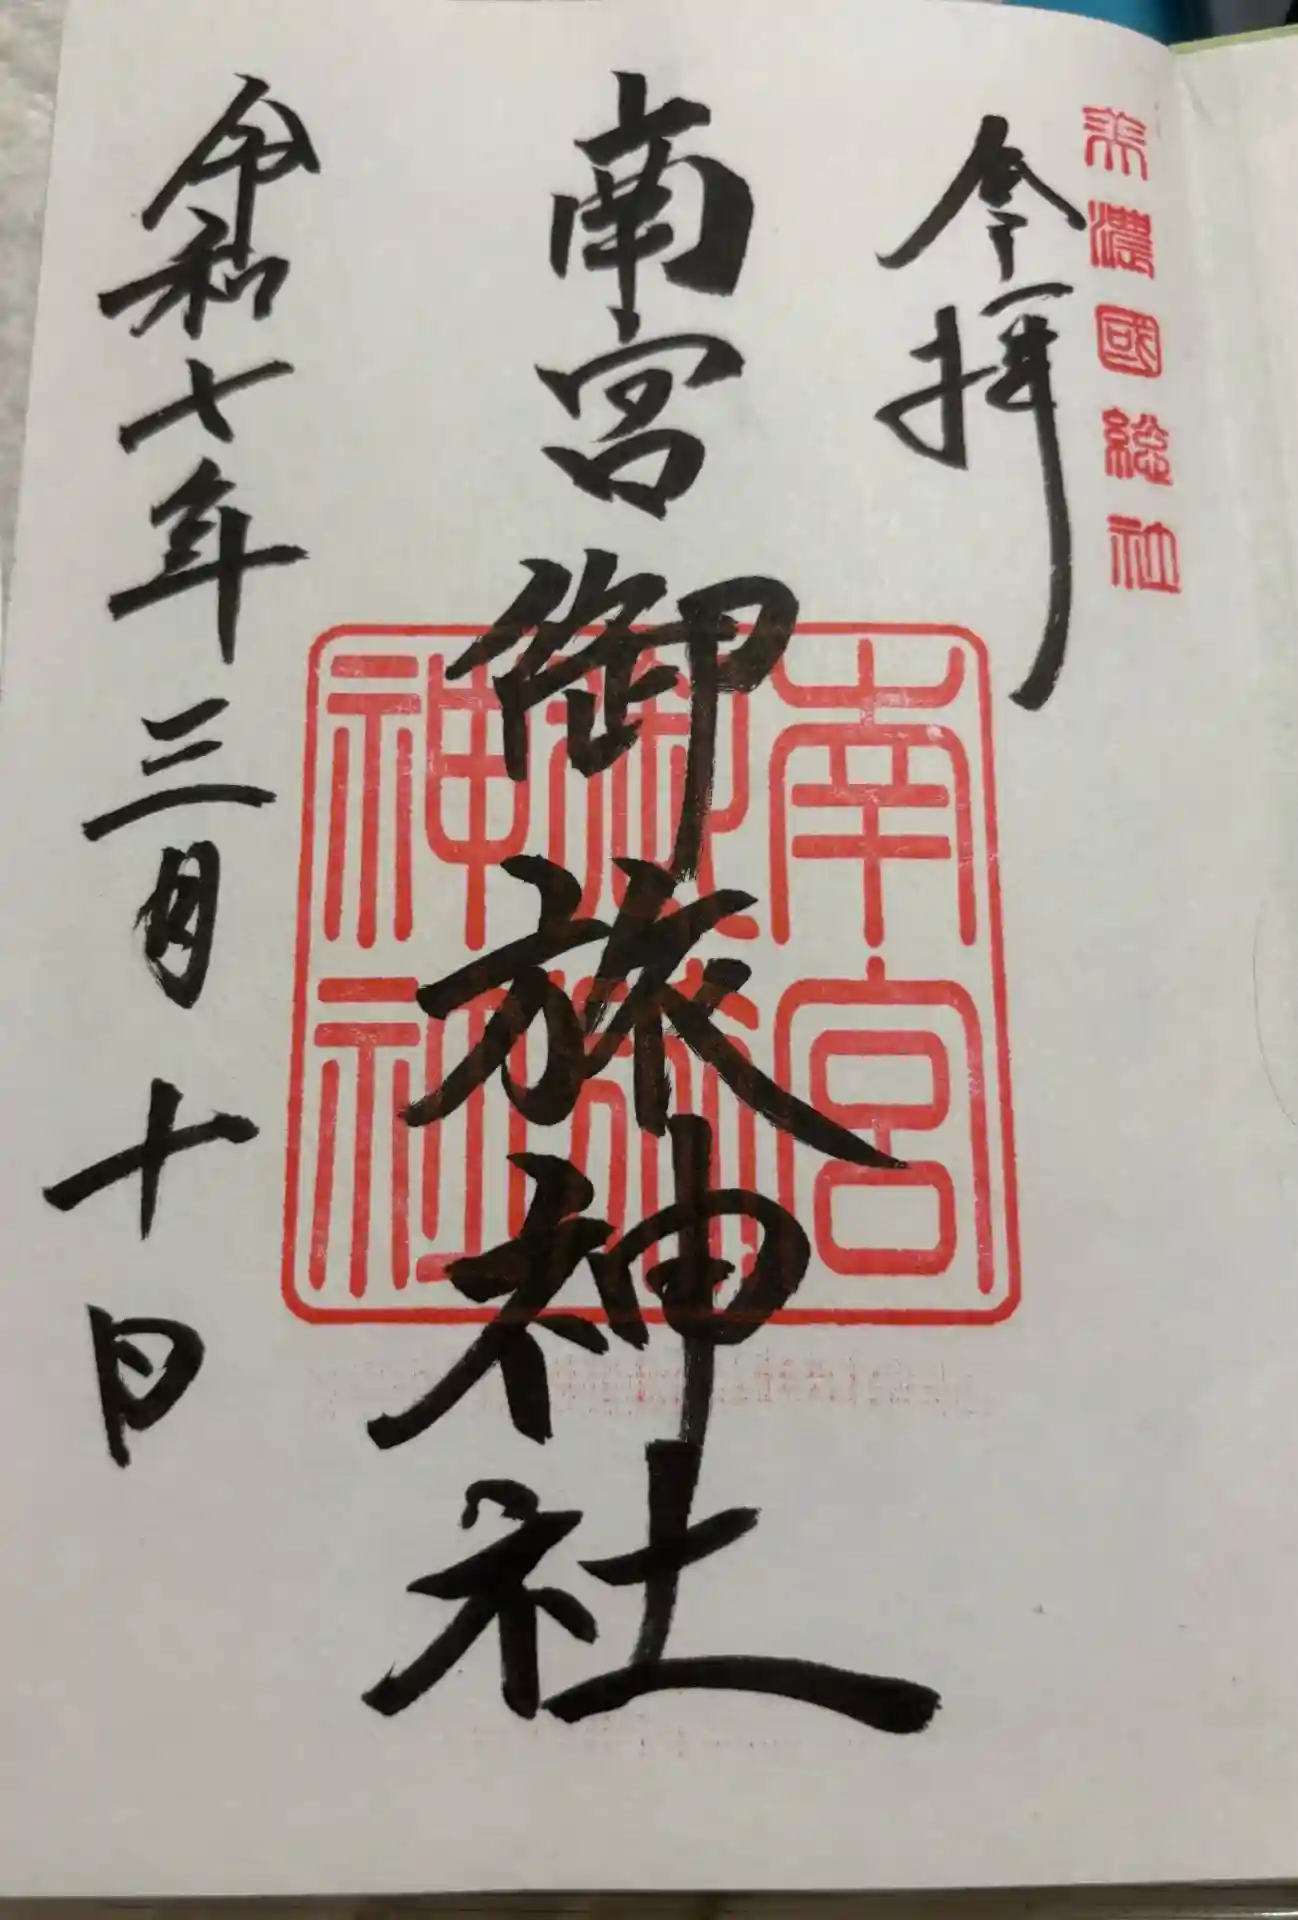 美濃國総社
今拝
南宮御旅神社
南宮
御旅
神社
令和七年三月十日